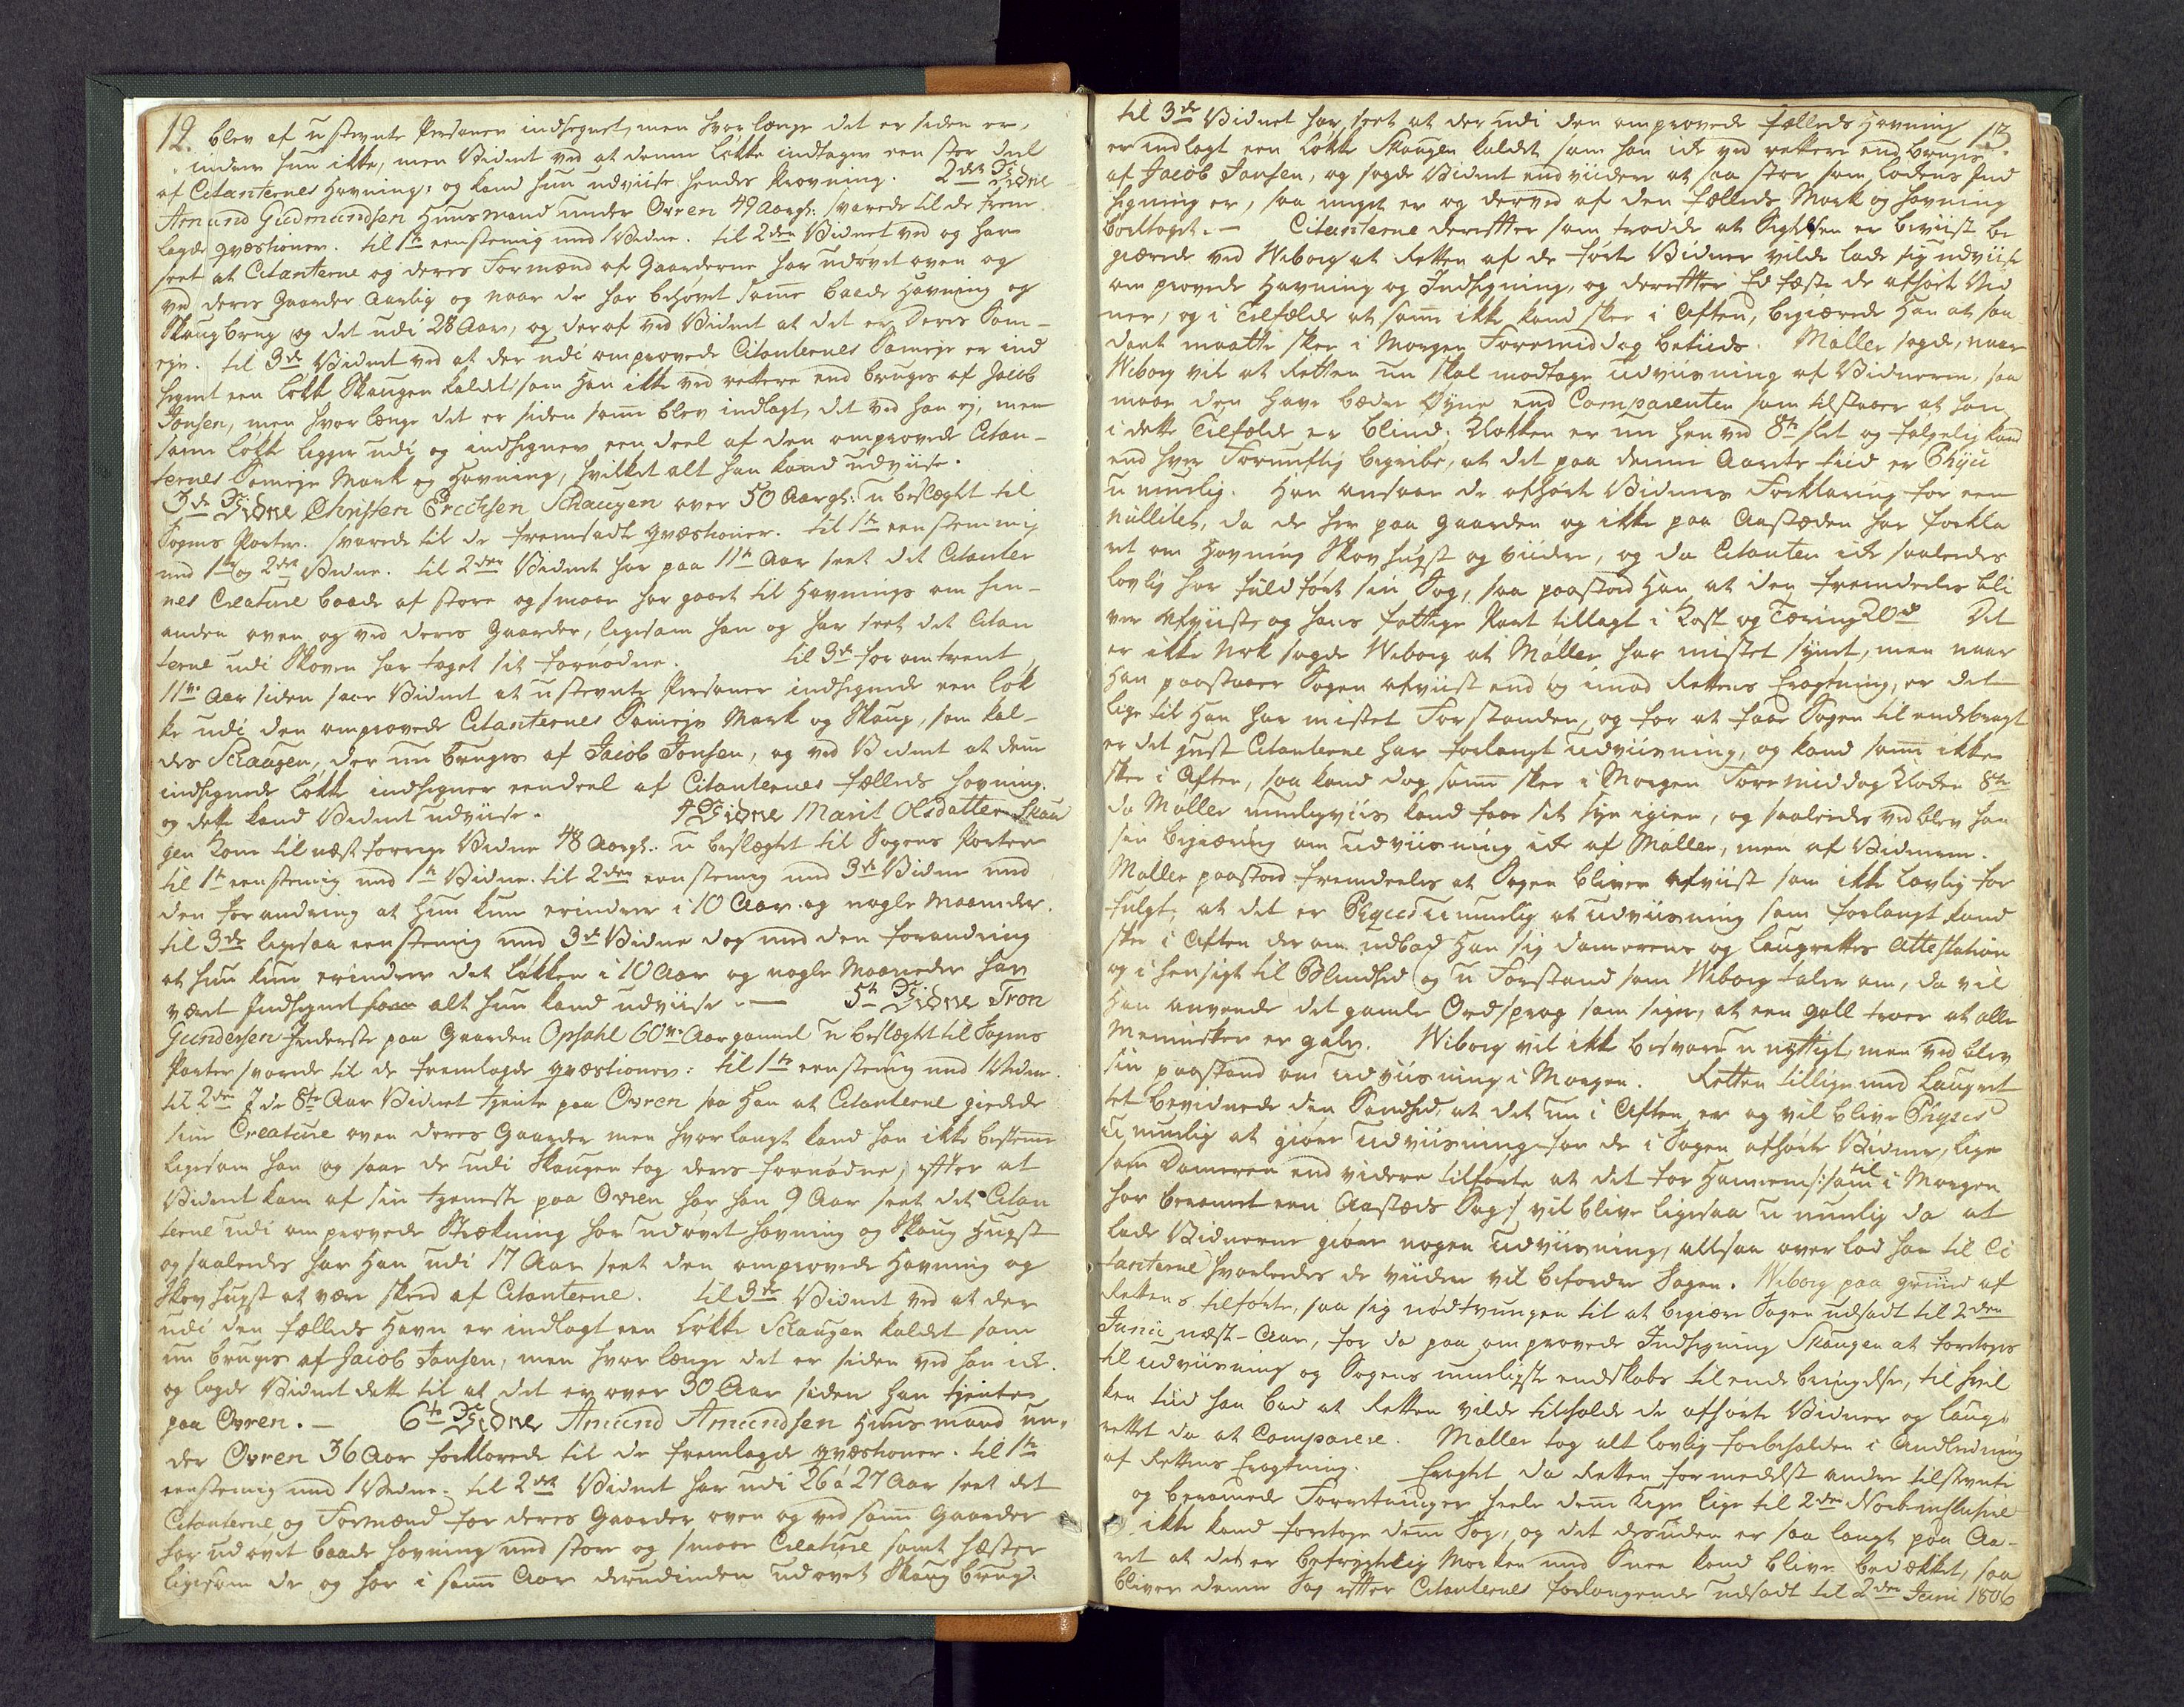 12.
blev af u stevnte Personer indhegnet, men hvor længe det er siden er,
indrer hun ikke, men Vidnet ved at denne Løkke indtager een stor Deel
af Citanternes Havning, og kand hun udviise hendes Provning. 2det Vidne
Amund Gudmundsen Huusmand under Ovren 49 Aargl: svarede til de frem-
lagde qvæstioner. til 1te eenstemig med 1 Vidne. til 2den Vidnet ved og har
seet at Citanterne og deres Formænd af Gaarderne har udøvet oven og
ved deres Gaarder Aarlig og naar de har behøvet samme baade Havning og
Skaugbrug og det udi 28 Aar, og deraf ved Vidnet at det er Deres Sam-
eje. til 3de Vidnet ved at der udi omprovede Citanternes Sameje er ind
hegnet een Løkke Skaugen kaldet som han ikke ved rettere end bruges af Jacob
Jonsen, men hvor længe det er siden samme blev indlagt, det ved han ej, men
samme Løkke ligger udi og indhegner een deel af den omprovede Citan-
ternes Sameje Mark og Havning, hvilket alt han kand udviise.
3de Vidne Christen Erichsen Schaugen over 50 Aargl: u beslægtet til
Sagens Parter. svarede til de fremsadte qvæstioner. til 1te eenstemmig
med 1te og 2det Vidne. til 2den Vidnet har paa 11te Aar seet det Citanter
nes Creature baade af store og smaae har gaaet til Havnings om hin-
anden oven og ved deres Gaarder, ligesom han og har seet det Citan
terne udi Skoven har taget sit fornødne. til 3de for omtrent
11ve Aar siden saae Vidnet at u stevnte Personer indhegnede een Løk
ke udi den omprovede Citanternes Sameje Mark og Skaug, som kal-
des Schaugen, der nu bruges af Jacob Jonsen, og ved Vidnet at denne
indhegnede Løkke indhegner eendeel af Citanternes fælleds Havning.
og dette kand Vidnet udviise. 4 Vidne Marit Olsdatter Skau
gen Kone til næst forrige Vidne 48 Aargl: u beslægtet til Sagens Parter
til 1te eenstemig med 1te Vidne. til 2den eenstemig med 3de Vidne med
den forandring at hun kun erindrer i 10 Aar og nogle Maaneder.
til 3de ligesaa eenstemig med 3de Vidne dog med den forandring
at hun kun erindrer det Løkken i 10 Aar og nogle Maaneder har
været Indhegnet alt hun kand udviise. — 5te Vidne Tron
Gundersen Inderste paa Gaarden Opsahl 60ve Aar gammel u beslægtet til Sagens
Parter svarede til de fremlagde qvæstioner: til 1te eenstemig med 1 Vidne.
til 2den I de 8te Aar Vidnet tjente paa Ovren saa han at Citanterne giedede
sine Creature oven deres Gaarder men hvor langt kand han ikke bestemme
ligesom han og saae de udi Skaugen tog deres fornødne, efter at
Vidnet kom af sin tjeneste paa Ovren har han 9 Aar seet det Citan
terne udi omprovede Strækning har udøvet Havning og Skaug Hugst
og saaledes har han udi 17 Aar seet den omprovede Havning og
Skov hugst at være skeed af Citanterne. til 3de Vidnet ved at der
udi den fælleds Havn er indlagt een Løkke Schaugen kaldet som
nu bruges af Jacob Jonsen, men hvor længe det er siden ved han ikke.
og lagde Vidnet dette til at det er over 30 Aar siden han tjente
paa Ovren. — 6te Vidne Amund Amundsen Huusmand un-
der Ovren 36 Aar forklarede til de fremlagde qvæstioner. til 1te
eenstemig med 1 Vidne. til 2det Vidnet har udi 26 á 27 Aar seet det
Citanterne og Formænd for deres Gaarder oven og ved samme Gaarder
har udøvet baade Havning med store og smaae Creature samt Hæster
ligesom de og har i samme Aar derudinden udøvet Skaug brug.
13.
til 3de Vidnet har seet at der udi den omprovede fælleds Havning
er indlagt een Løkke Skaugen kaldet som han ikke ved rettere end bruges
af Jacob Jonsen, og sagde Vidnet endviidere at saa stor som Lodens Ind
hegning er, saa meget er og derved af den fælleds Mark og Havning
borttaget. — Citanterne derefter som troede at Sigtelsen er beviist be
giærede ved Wiborg at Retten af de førte Vidner vilde lade sig udviise
omprovede Havning og Indhegning, og derefter Edfæste de afhørte Vid
ner, og i Tilfælde at samme ikke kand skee i Aften, begiærede han at saa-
dant maatte skee i Morgen Formiddag betiids. Møller sagde, naar
Wiborg vil at Retten nu skal modtage udviisning af Vidnerne, saa
maae den have bedre Øyne end Comparenten som tilstaaer at han
i dette Tilfælde er blind; Klokken er nu hen ved 8te slet og følgelig kand
end hver Fornuftig begribe, at det paa denne Aarets tiid er Phÿci
u muelig. Han ansaae de afhørte Vidners Forklaring for een
nullitet, da de her paa gaarden og ikke paa Aastæden har forkla
ret om Havning Skovhugst og viidere, og da Citanten ikke saaledes
lovlig har fuldført sin Sag, saa paastod han at den fremdeeles bli
ver afviist og hans fattige Part tillagt i Kost og Tæring 20 rd Det
er ikke nok sagde Wiborg at Møller har mistet synet, men naar
han paastaaer Sagen afviist end og imod Rettens Eragtning, er det
lige til han har mistet Forstanden, og for at faae Sagen til endebragt
er det just Citanterne har forlangt udviisning, og kand samme ikke
skee i Aften, saa kand dog samme skee i Morgen Formiddag Kloken 8te
da Møller mueligviis kand faae sit syn igien, og saaledes ved blev han
sin begiæring om udviisning ikke af Møller, men af Vidnerne.
Møller paastod fremdeeles at Sagen bliver afviist som ikke lovlig for
fulgt, at det er Phÿces u muelig at udviisning som forlangt kand
skee i Aften derom udbad han sig dommerens og Laugrettes Attestation
og i hensigt til Blindhed og u Forstand som Wiborg taler om, da vil
han anvende det gamle Ordsprog som siger, at een gall troer at alle
Mennisker er gale. Wiborg vil ikke besvare u nyttigt, men ved blev
sin paastand om udviisning i Morgen. Retten tillige med Laugret
tet bevidnede den Sandhed, at det nu i Aften er og vil blive Phÿces
u muelig at giøre udviisning for de i Sagen afhørte Vidner, lige
som Dommeren end videre tilførte at det for Hannem /: som til i Morgen
har berammet een Aastæds Sag :/ vil blive ligesaa u muelig da at
lade Vidnerne giøre nogen udviisning, altsaa overlod han til Ci
tanterne hvorledes de viidere vil befordre Sagen. Wiborg paa grund af
Rettens tilførte, saa sig nødtvungen til at begiære Sagen udsadt til 2den
Junii næst-Aar, for da paa omprovede Indhegning Skaugen at foretages
til udviisning og Sagens mueligste endskabs til ende bringelse, til hvil
ken tiid han bad at Retten vilde tilholde de afhørte Vidner og Laug-
rettet da at Comparere. Møller tog alt lovlig forbeholden i Andledning
af Rettens Eragtning. Eragtet da Retten formedelst andre tilstevnte
og berammede Forretninger heele denne Uge lige til 2den Novbr inclusive
ikke kand foretage denne Sag, og det desuden er saa langt paa Aa-
ret at det er befrygtelig Marken med Snee kand blive bedækket, saa
bliver denne Sag efter Citanternes forlangende udsadt til 2den Juni 1806